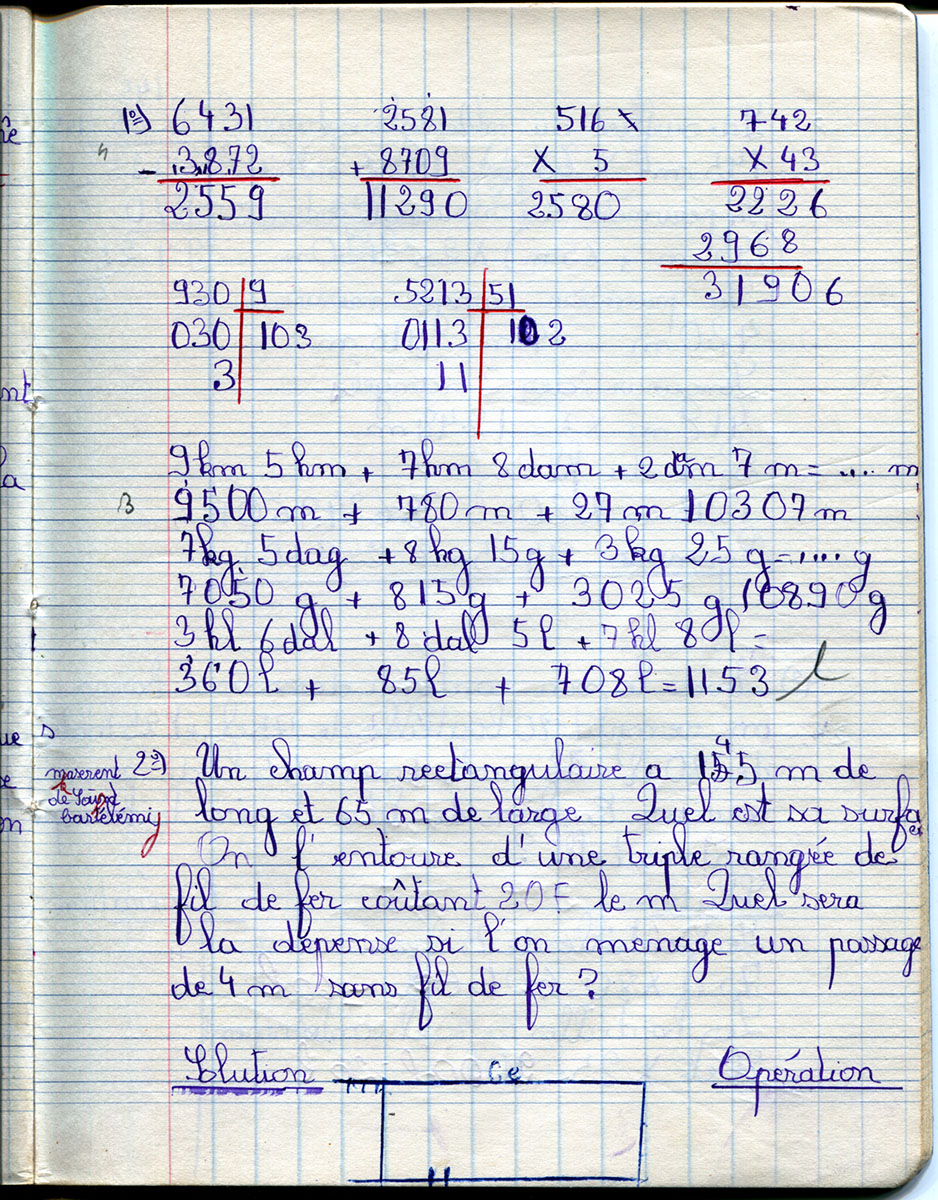 1º) 6431 2581 516 x 742
- 3872 + 8709 X 5 X 43
2559 11290 2580 2226
2968
31906
930 9 5213 51
030 103 0113 102
3 11
9km 5hm + 7hm 8dam + 2dam 7m = .... m
9500m + 780m + 27m 10307m
7kg 5dag + 8hg 15g + 3kg 25g = .... g
7050g + 815g + 3025g 10890g
3hl 6dal + 8dal 5l + 7hl 8l =
360l + 85l + 708l = 1153 l
2º) Un champ rectangulaire a 145 m de
long et 65 m de large Quel est sa surface
On l'entoure d'une triple rangée de
fil de fer coûtant 20F le m Quel sera
la dépense si l'on menage un passage
de 4 m sans fil de fer ?
Solution Opération